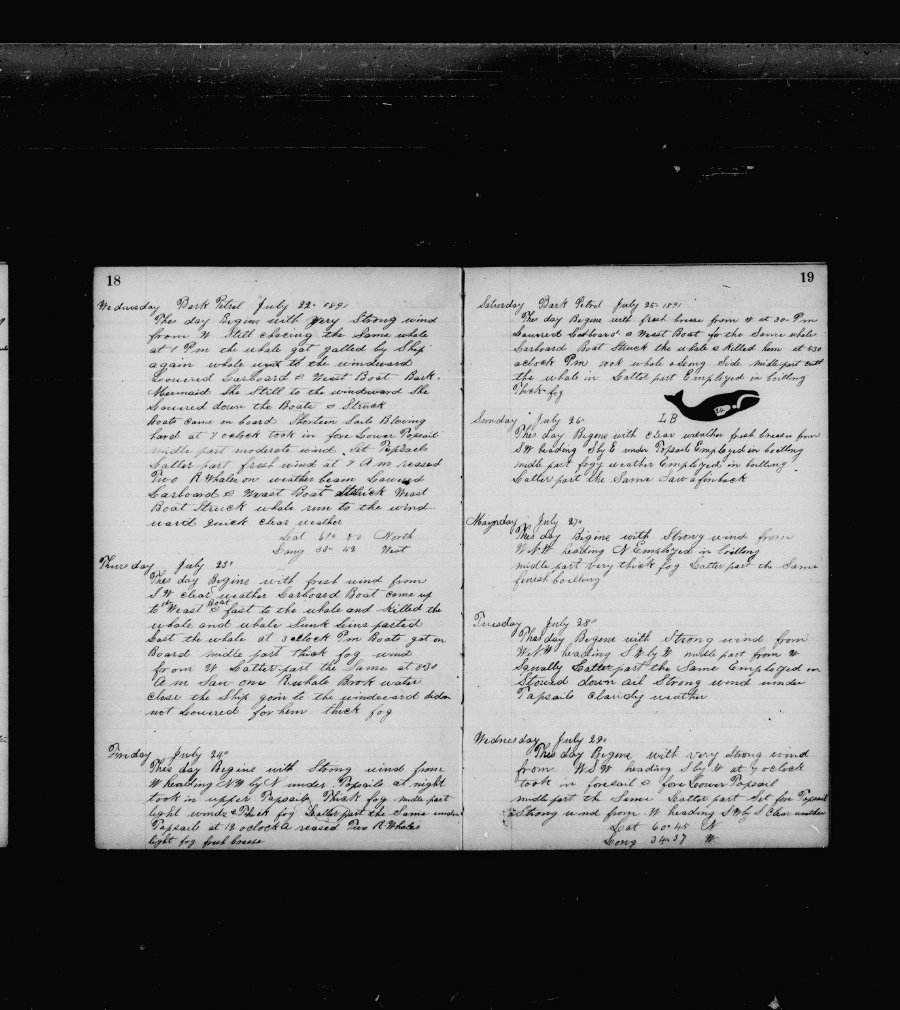 18
Wednesday Bark Petrel July 22" 1891
This day Begins with very Strong wind
from W Still chacing the Same whale
at 1 Pm the whale got galled by Ship
again whale went to the windward
Lowered Larboard & Weast Boat Bark.
Mermaid She Still to the windward She
Lowered down the Boats & Struck
Boats came on board Shorten Sails Blowing
hard at 7 oclock took in fore Lower Topsail
midle part moderate wind Set Topsails
Latter part fresh wind at 7 Am
Two R Whales on weather beam Lowered
Larboard & Weast Boat Weast
Boat Struck whale run to the wind
ward quick clear weather
Lat 61" North
Long West
Thursday July 23"
This day Begins with fresh wind from
S W clear weather Larboard Boat came up
to the Weast Boat & fast to the whale and Killed the
whale and whale Sunk Lins parted
Lost the whale at 3 oclock Pm Boats got on
Board midle part thick fog wind
from W Latter part the Same at 8·30
Am Saw one R whale Book water
close the Ship goin to the windward diden
not Lowered for him thick fog
Finday July 24"
This day Begins with Strong wind from
W heading NW by N under Topsails at night
took in upper Topsails Thick fog midle part
light winds & Thick fog Latter part the Same under
Topsails at 12 oclock Two R Whales
light fog fresh breese
19
Saturday Bark Petrel July 25" 1891
This day Begins with fresh breese from W at 30 Pm
Lowered Larboard & Weast Boat for the Same whales
Larboard Boat Struck the whale & Killed him at 530
oclock Pm took whale along Side midle part cutt
the whale in Latter part Employed in boilling
Thick fog
L B
Sunday July 26"
This day Begins with clear weather fresh breese from
SW heading S by E under Topsail Employed in boilling
midle part fogy weather Employed in boilling
Latter part the Same Saw a finback
Maynday July 27"
This day Begins with Strong wind from
WNW heading N Employed in boilling
midle part very thick fog Latter part the Same
finest boilling
Tuesday July 28"
This day Begins with Strong wind from
WNW heading S W by W midle part from W
Squally Latter part the Same Employed in
Stowed down oil Strong wind under
Topsails claudy weather
Wednesday July 29"
This day Begins with very Strong wind
from WSW heading S by W at 7 oclock
took in foresail & fore Lower Topsail
midle part the Same Latter part Set fore Topsail
Strong wind from W heading SW by S Clear weather
Lat 60·45 N
Long 34·37 W